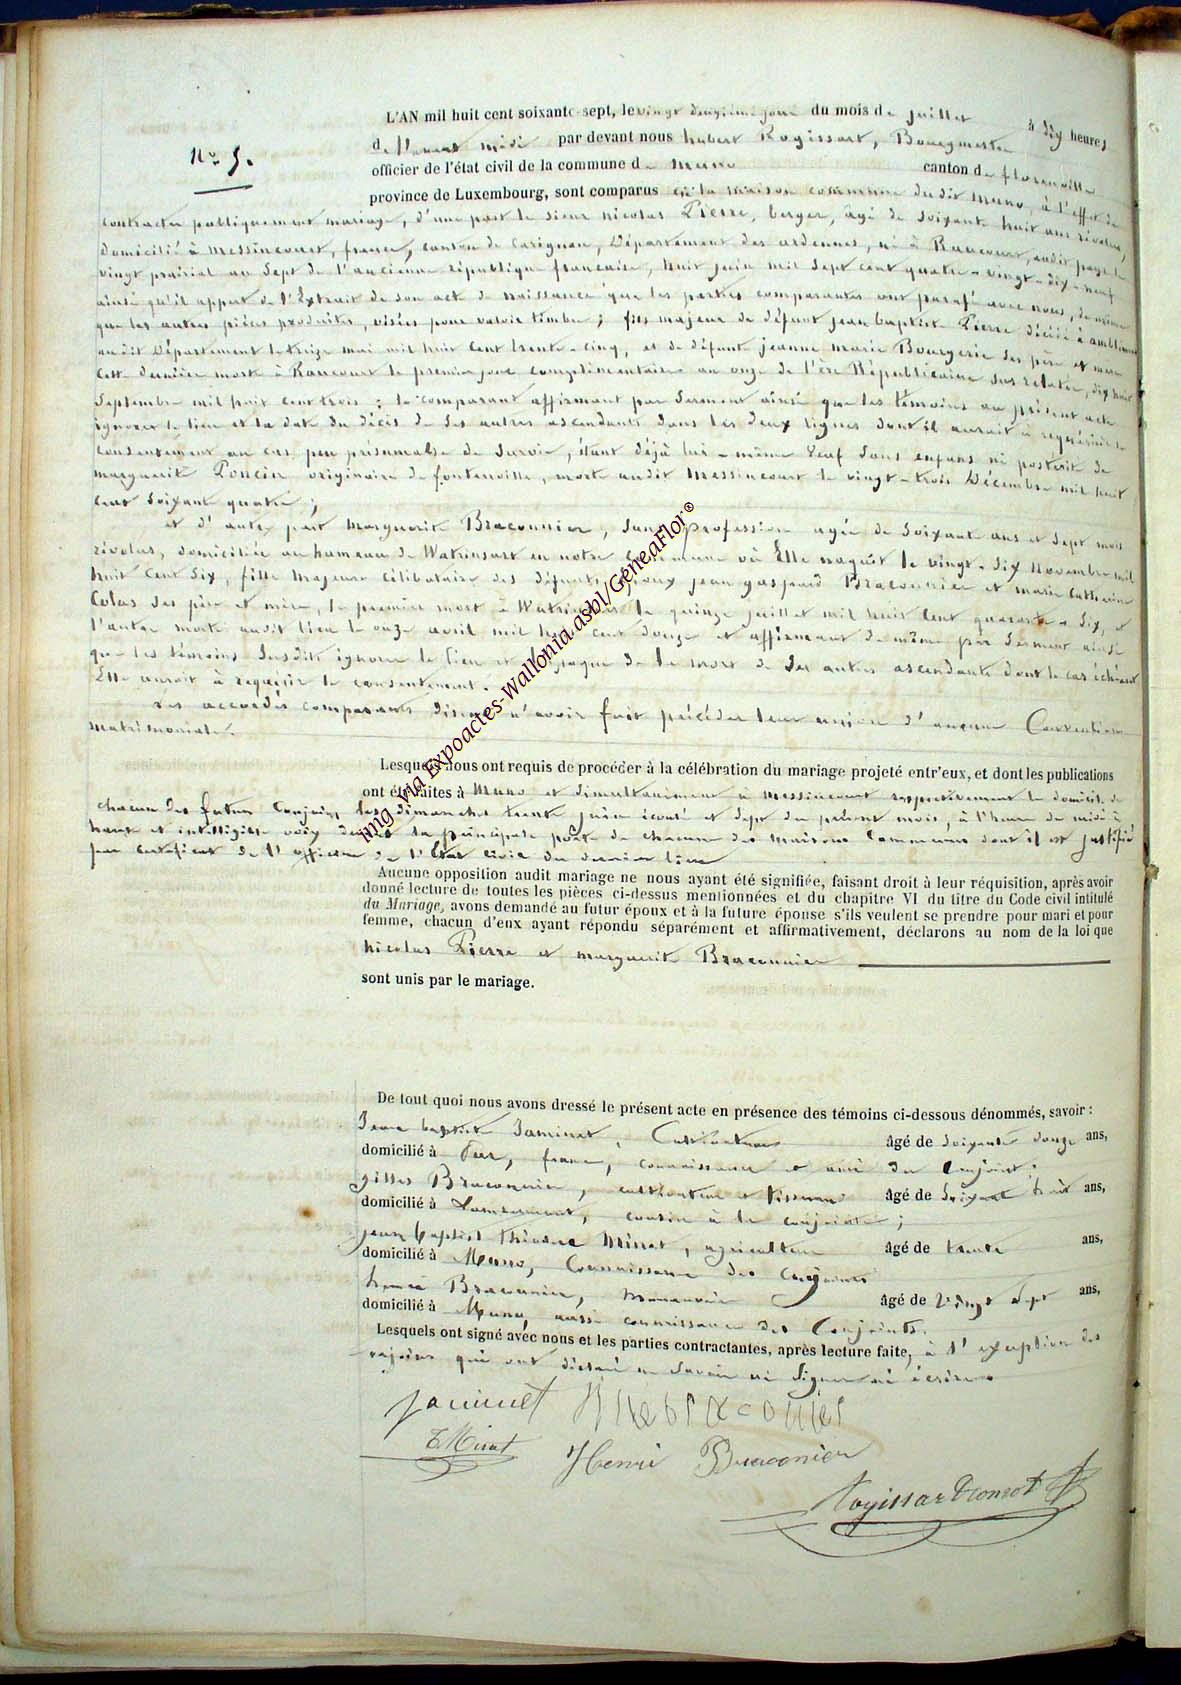 L'AN mil huit cent soixante-sept, le vingt deuxième jour du mois de juillet à dix heures
de l'avant midi par devant nous hubert Rogissart, Bourgmestre
officier de l'état civil de la commune de Muno canton de florenville
Nº 5.
province de Luxembourg, sont comparus en la maison commune dudit Muno, à l'effet de
contracter publiquement mariage, d'une part le sieur nicolas Pierre, berger, âgé de soixante huit ans révolus,
domicilié à Messincourt, france, canton de Carignan, Département des ardennes, né à Raucourt, audit pays le
vingt prairial an sept de l'ancienne république française, huit juin mil sept cent quatre-vingt-dix-neuf
ainsi qu'il appert de l'Extrait de son act de naissance que les parties comparantes ont parafé avec nous, de même
que les autres pièces produites, visées pour valoir timbre; fils majeur de défunt jean baptiste Pierre décédé à
audit Département le treize mai mil huit cent trente-cinq, et de défunte jeanne marie Bourgerie ses père et mère
cette dernière morte à Raucourt le premier jour complémentaire an onze de l'ère Républicaine sus relatée, dix huit
Septembre mil huit cent trois; le comparant affirmant par serment ainsi que les témoins au présent acte
ignorer le lieu et la date du décès de ses autres ascendants dans les deux lignes dont il aurait à requérir le
consentement au cas peu présumable de survie, étant déjà lui-même veuf sans enfans ni postérité de
marguerite Poncin originaire de fontenoille, morte audit Messincourt le vingt-trois Décembre mil huit
cent soixante quatre;
et d'autre part Marguerite Braconnier, sans profession agée de soixante ans et sept mois
révolus, domiciliée au hameau de Watrinsart en notre commune où Elle naquit le vingt-dix Novembre mil
huit cent six, fille majeure célibataire des défunts époux jean gaspard Braconnier et marie Catherine
Colas ses père et mère, le premier mort à Watrinsart le quinze juillet mil huit cent quarante-six, et
l'autre morte audit lieu le onze avril mil huit cent douze et affirmant de même par serment ainsi
que les témoins susdits ignorer le lieu et l'époque de la mort de ses autres ascendants dont le cas échéant
Elle aurait à requérir le consentement.
Les accordés comparants disent n'avoir fait précéder leur union d'aucune Convention
matrimoniale.
Lesquels nous ont requis de procéder à la célébration du mariage projeté entr'eux, et dont les publications
ont été faites à Muno et simultanément à Messincourt respectivement le domicile de
chacun des futurs Conjoints les dimanches trente juin écoulé et sept du présent mois, à l'heure de midi à
haute et intelligible voix devant la principale porte de chacune des maisons Communes dont il est justifié
par certificat de l'officier de l'Etat civil du dernier lieu
Aucune opposition audit mariage ne nous ayant été signifiée, faisant droit à leur réquisition, après avoir
donné lecture de toutes les pièces ci-dessus mentionnées et du chapitre VI du titre du Code civil intitulé
du Mariage, avons demandé au futur époux et à la future épouse s'ils veulent se prendre pour mari et pour
femme, chacun d'eux ayant répondu séparément et affirmativement, déclarons au nom de la loi que
nicolas Pierre et marguerite Braconnier
sont unis par le mariage.
De tout quoi nous avons dressé le présent acte en présence des témoins ci-dessous dénommés, savoir :
Jean baptiste Jaminet, Cultivateur âgé de soixante douze ans,
domicilié à Pure, france, connaissance et ami du Conjoint;
gilles Braconnier, cultivateur et tisserand âgé de soixante huit ans,
domicilié à Lambermont, cousin à la conjointe;
jean baptist théodore Minet, agriculteur âgé de trente ans,
domicilié à Muno, Connaissance des Conjoints
henri Braconnier, manœuvre âgé de vingt sept ans,
domicilié à Muno, aussi connaissance des Conjoints.
Lesquels ont signé avec nous et les parties contractantes, après lecture faite, à l'exception des
qui ont déclaré ne savoir ni signer ni écrire.
Jaminet
T Minet Henri Braconier
img via Expoactes-Wallonia.asbl/GeneaFlor®